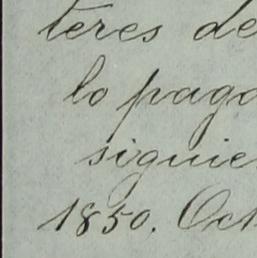 teres de
lo paga
siguie
1850. Oct